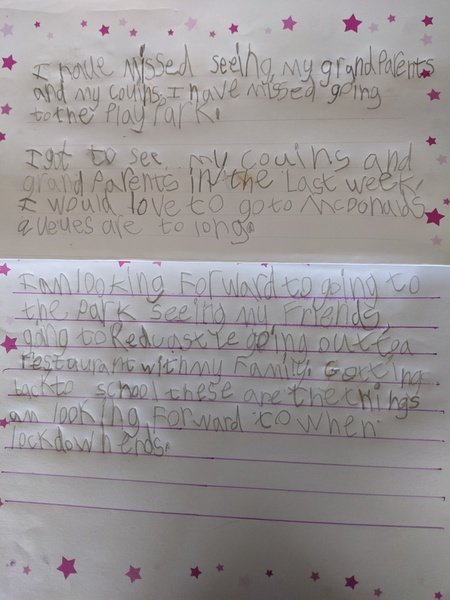 I have missed seeing my grandParents
and my couins, I have missed going
to the Play Park.
I got to see my couins and
grandParents in the last week,
I would love to go to McDonalds
queues are to long.
I am looking Forward to going to
the Park seeing my Friends,
gang to Redcastle going out to a
restaurant with my Family. Gotting
back to school these are the things
am looking Forward to when
lockdown ends.